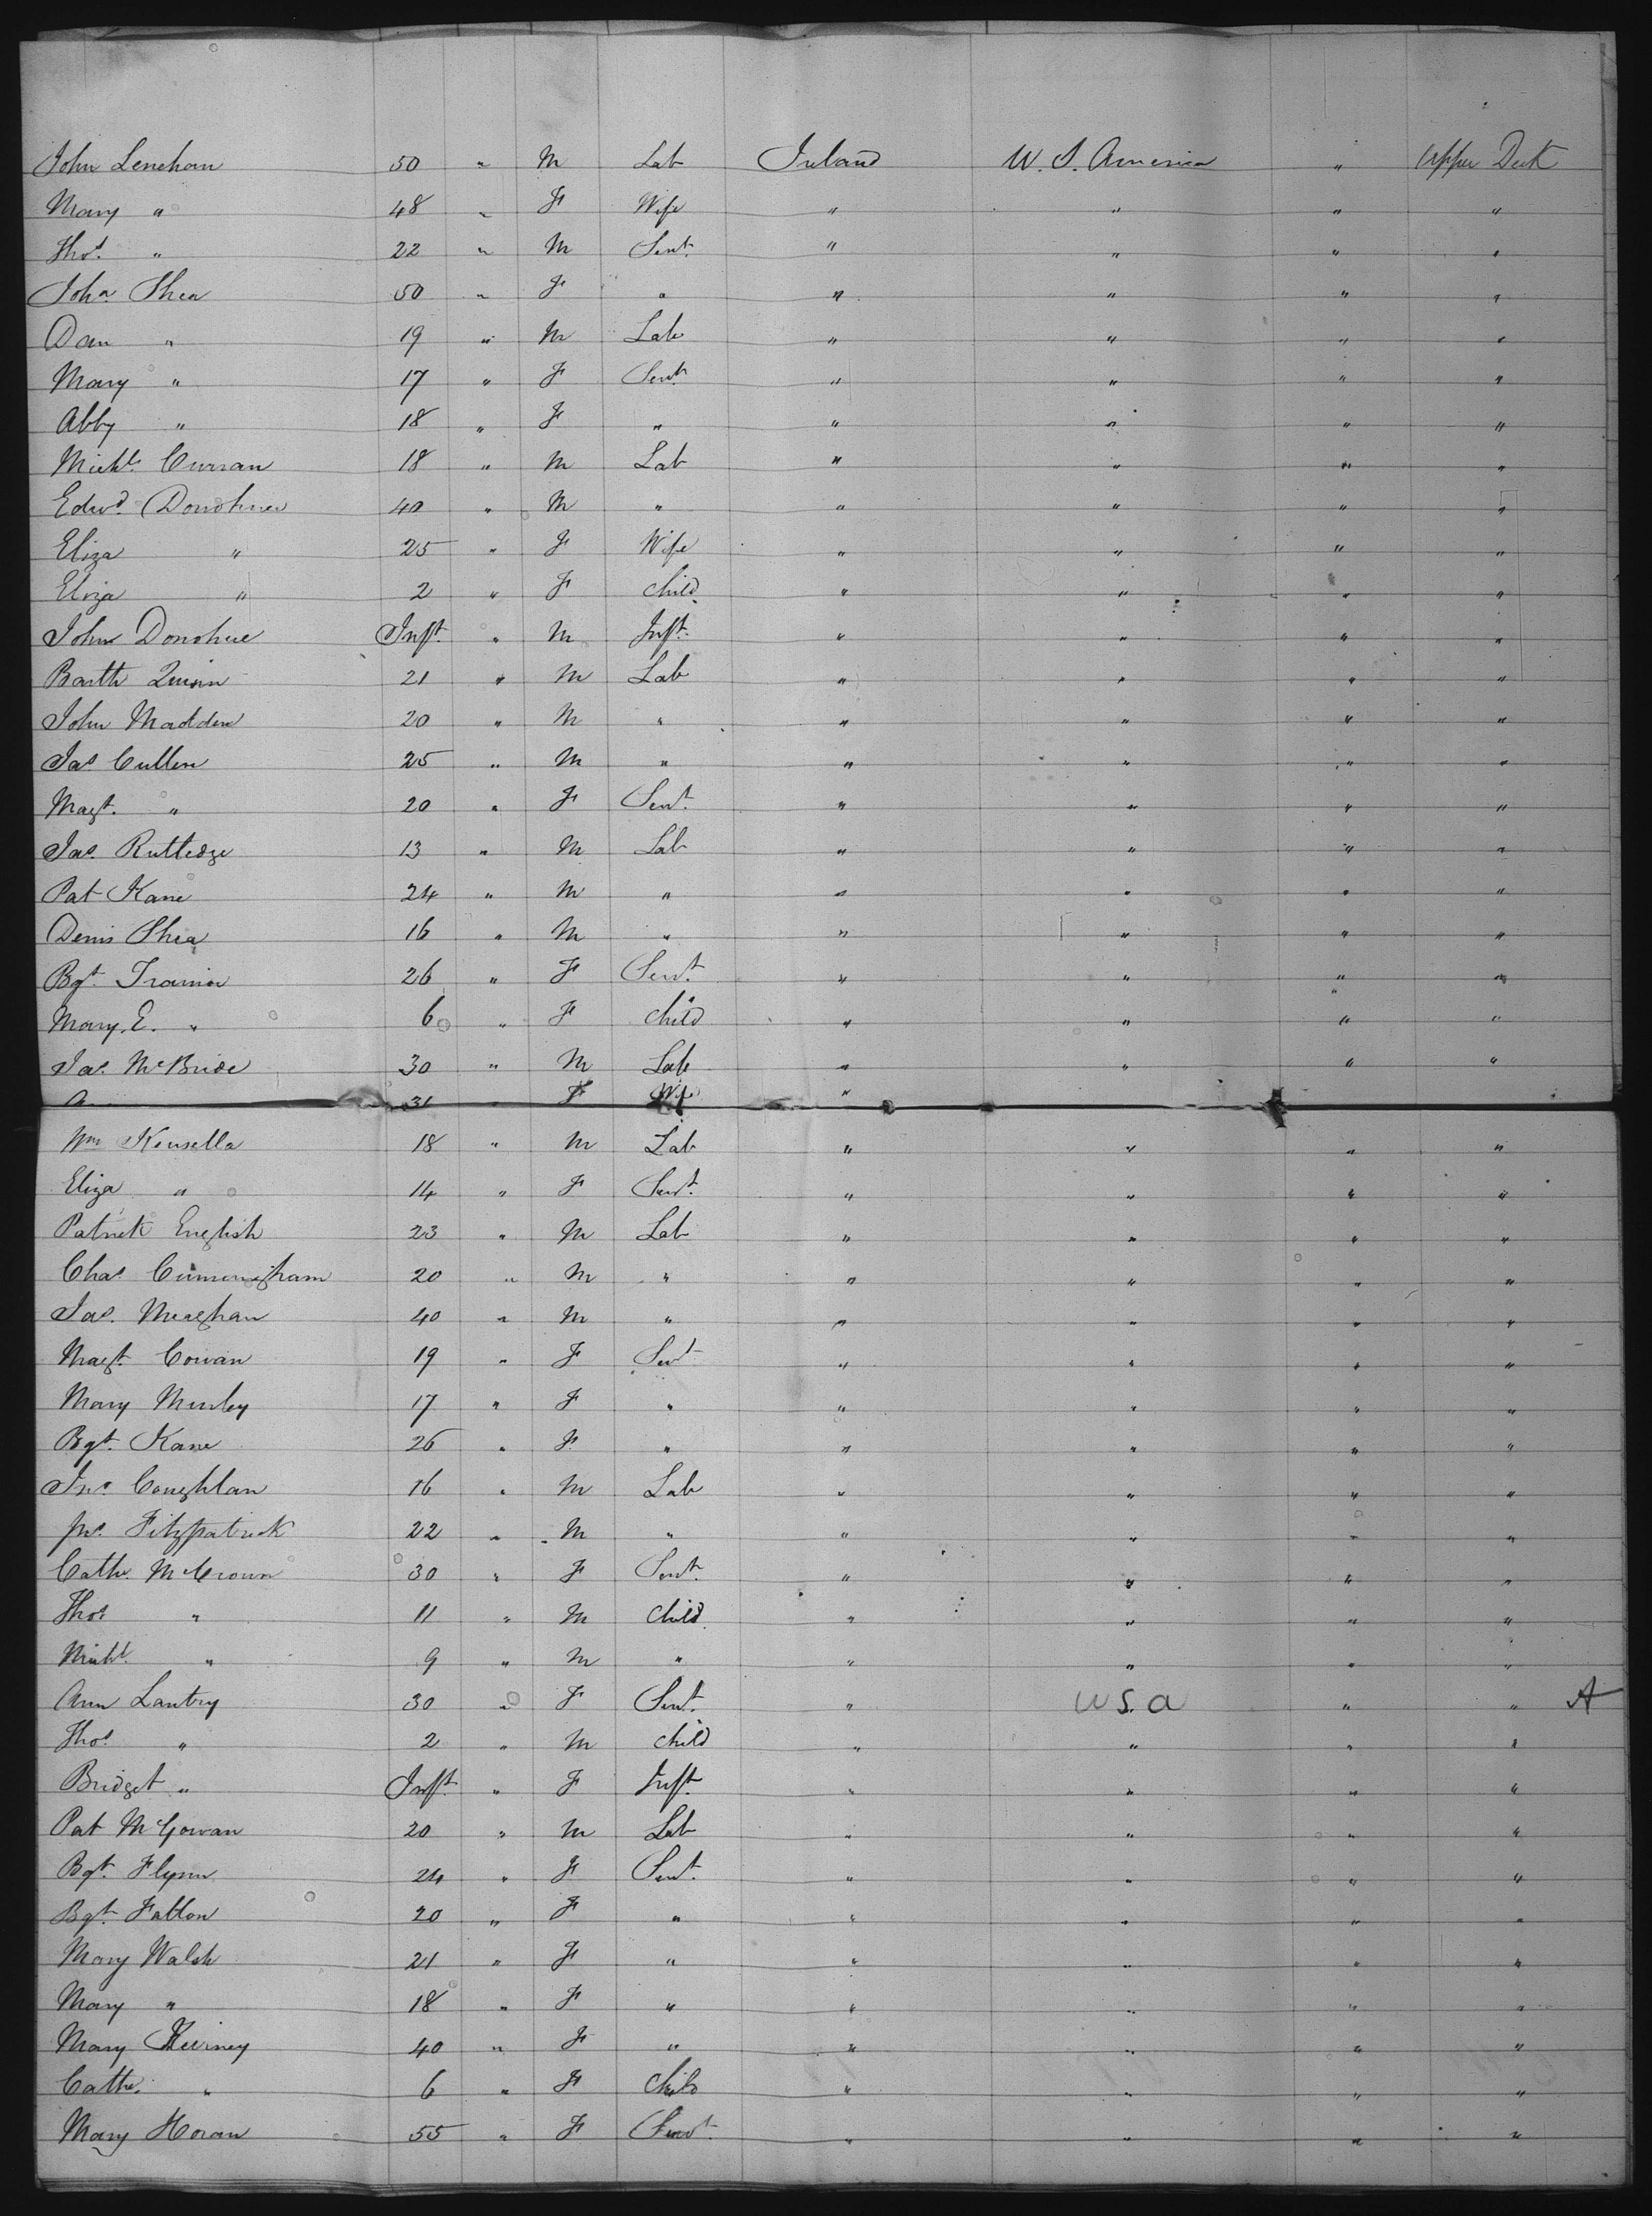 John Lenehan 50 " M Lab Ireland U. S. America " Upper Deck
Mary " 48 " F Wife " " " "
Thos. " 22 " M Servt. " " " "
Joha Shea 50 " F " " " " "
Dan " 19 " M Lab " " " "
Mary " 17 " F Servt. " " " "
Abby " 18 " F " " " " "
Michl. Curran 18 " M Lab " " " "
Edwd. Donohue 40 " M " " " " "
Eliza " 25 " F Wife " " " "
Eliza " 2 " F Child " " " "
John Donohue Inft. " M Inft. " " " "
Barth Quinn 21 " M Lab " " " "
John Madden 20 " M " " " " "
Jas. Cullen 25 " M " " " " "
Magt. " 20 " F Servt. " " " "
Jas. Rutledge 13 " M Lab " " " "
Pat Kane 24 " M " " " " "
Denis Shea 16 " M " " " " "
Bgt. Trainor 26 " F Servt. " " " "
Mary. E. " 6 " F Child " " " "
Jas. McBride 30 " M Lab " " " "
31 F Wife "
Wm Kinsella 18 " M Lab " " " "
Eliza " 14 " F Servt. " " " "
Patrick English 23 " M Lab " " " "
Chas. Cunningham 20 " M " " " " "
Jas. Meaghan 40 " M " " " " "
Magt. Cowan 19 " F Servt " " " "
Mary Murley 17 " F " " " " "
Bgt. Kane 26 " F " " " " "
Jno. Coughlan 16 " M Lab " " " "
Jno. Fitzpatrick 22 " M " " " " "
Cathe. McCrown 30 " F Servt. " " " "
Thos " 11 " M Child " " " "
Michl. " 9 " M " " " " "
Ann Lantry 30 " F Servt. " U S. A " " A
Thos. " 2 " M Child " " " "
Bridget " Inft. " F Inft. " " " "
Pat McGowan 20 " M Lab " " " "
Bgt. Flynn 24 " F Servt. " " " "
Bgt. Fallon 20 " F " " " " "
Mary Walsh 21 " F " " " " "
Mary " 18 " F " " " " "
Mary Kierney 40 " F " " " " "
Cathe. " 6 " F Child " " " "
Mary Horan 55 " F Servt. " " " "